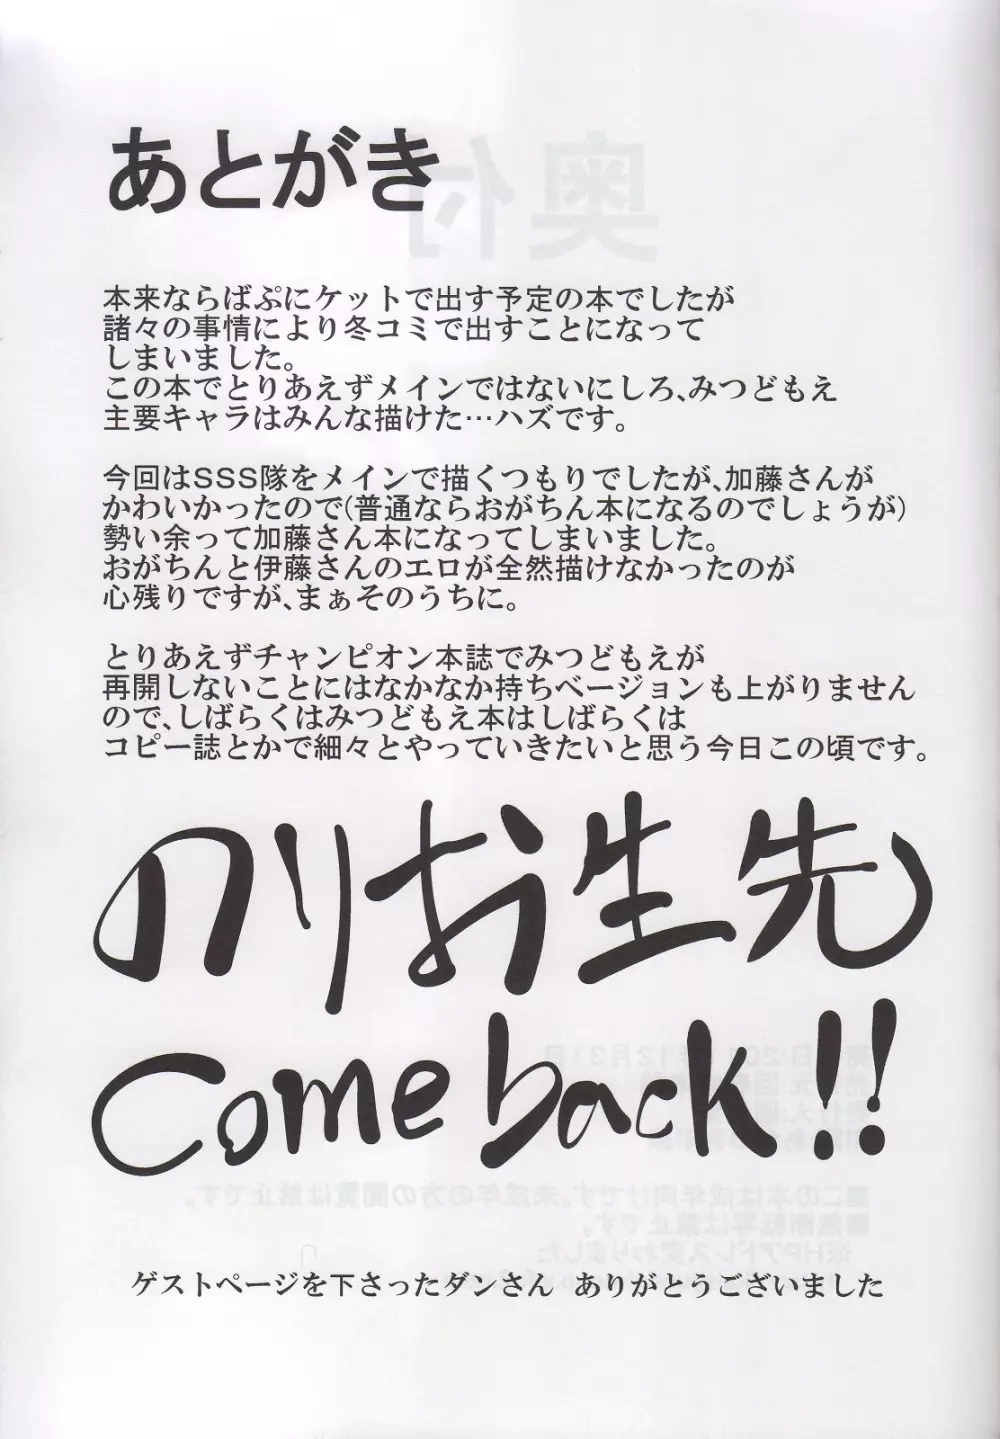 あとがき
本来ならばぷにケットで出す予定の本でしたが
諸々の事情により冬コミで出すことになって
しまいました。
この本でとりあえずメインではないにしろ、みつどもえ
主要キャラはみんな描けた…ハズです。
今回はSSS隊をメインで描くつもりでしたが、加藤さんが
かわいかったので(普通ならおがちん本になるのでしょうが)
勢い余って加藤さん本になってしまいました。
おがちんと伊藤さんのエロが全然描けなかったのが
心残りですが、まぁそのうちに。
とりあえずチャンピオン本誌でみつどもえが
再開しないことにはなかなか持ちベージョンも上がりません
ので、しばらくはみつどもえ本はしばらくは
コピー誌とかで細々とやっていきたいと思う今日この頃です。
のりお生先
Come back!!
ゲストページを下さったダンさん ありがとうございました
奥付
■この本は成年向けです。未成年の方の閲覧は禁止です。
■無断転写は禁止です。
※HPアドレス変わりました